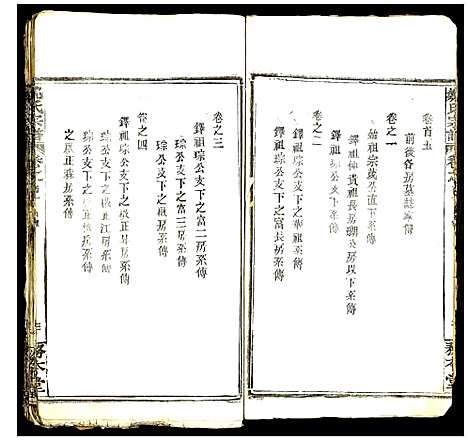 卷首五
前後各房墓誌家傳
卷之一
始祖宗英公直下系傳
鐸祖仲貴祖長房瑚公房以下系傳
卷之二
鐸祖琮公支下之華一系傳
琮公支下之富長房系傳
卷之三
鐸祖琮公支下之富二房系傳
琮公支下之富三房系傳
琮公支下之極房系傳
卷之四
鐸祖琮公支下之極正昇房系傳
琮公支下之極正江房系傳
之底正森房系傳
氏宗譜
務本堂